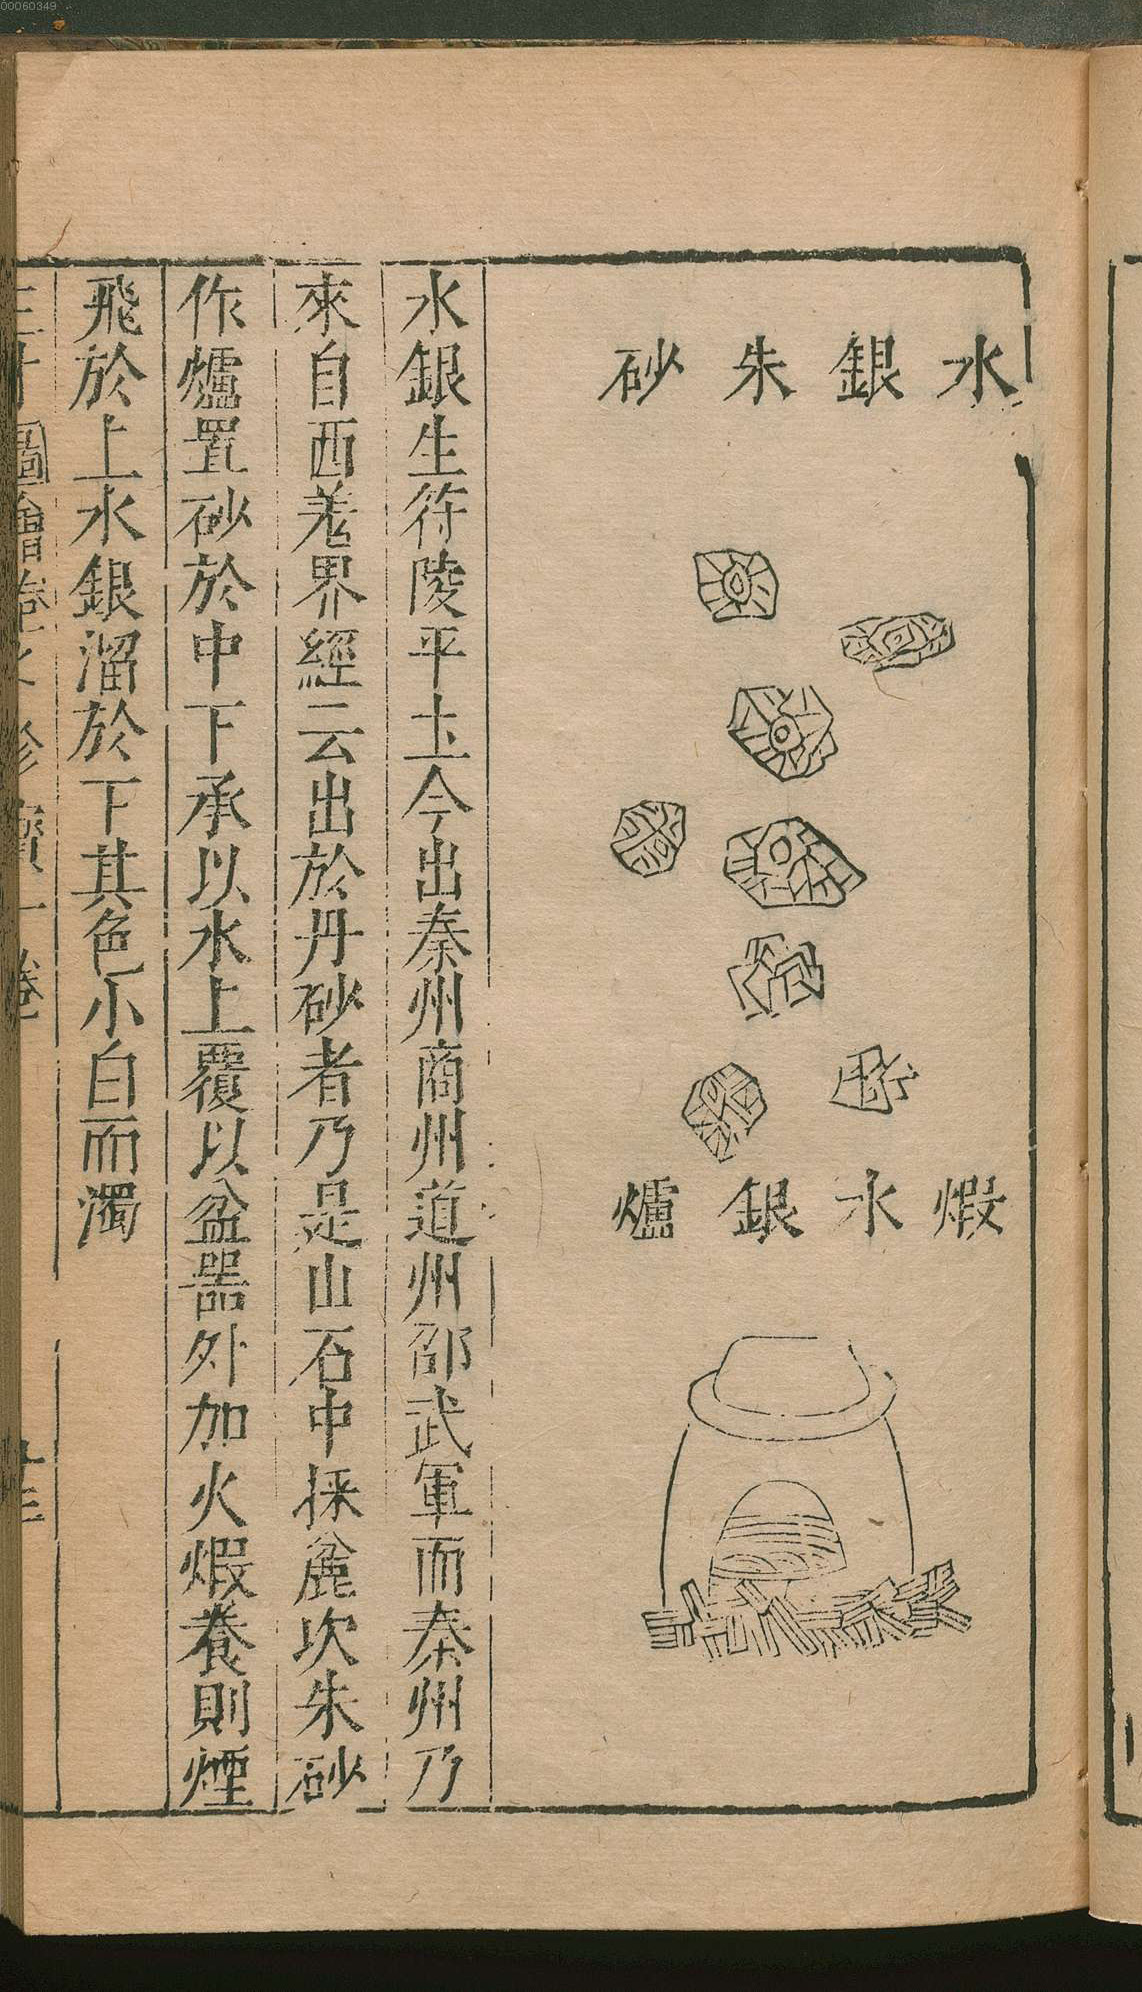 00060349
水銀朱砂
煆水銀爐
水銀生符陵平土今出秦州商州道州邵武軍而秦州乃
來自西羌界經云出於丹砂者乃是山石中採麄次朱砂
作爐置砂於中下承以水上覆以盆器外加火煆養則煙
飛於上水銀溜於下其色小白而濁
三才圖會卷之 珍寶一卷